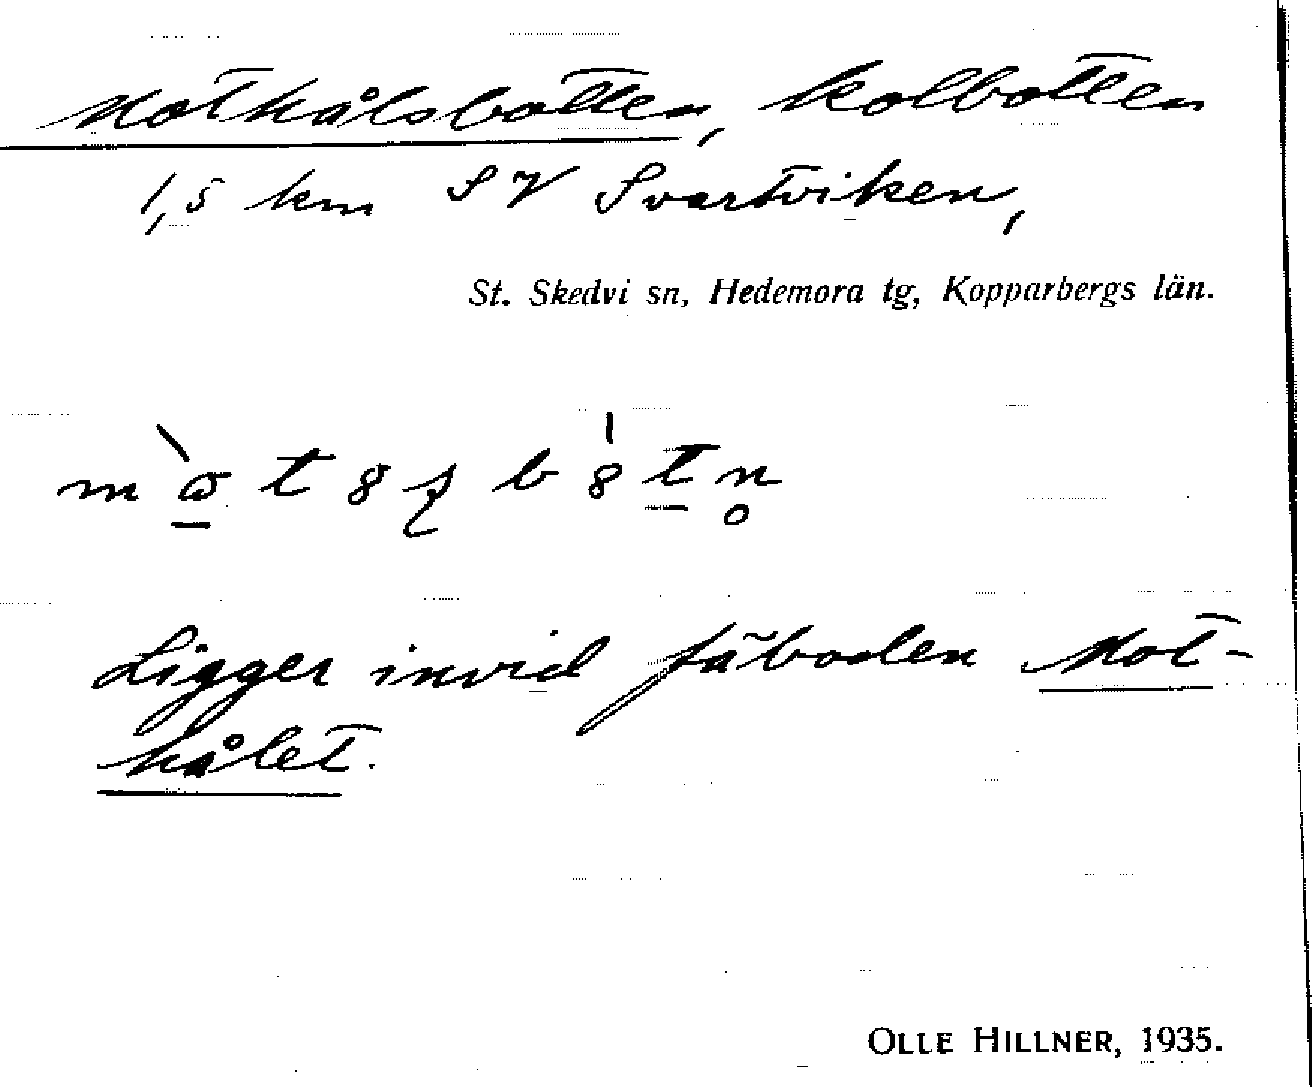 Motkålsbotten, kolbotten
1,5 km SV Svartviken,
St. Skedvi sn, Hedemora tg, Kopparbergs län.
Ligger invid fäboden Mot-
kålet.
OLLE HILLNER, 1935.